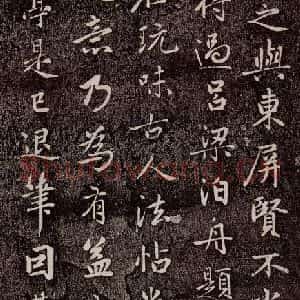 之與東屏賢不
將過呂梁泊舟題
在玩味古人法帖
意乃為有益
亭是已退筆因其